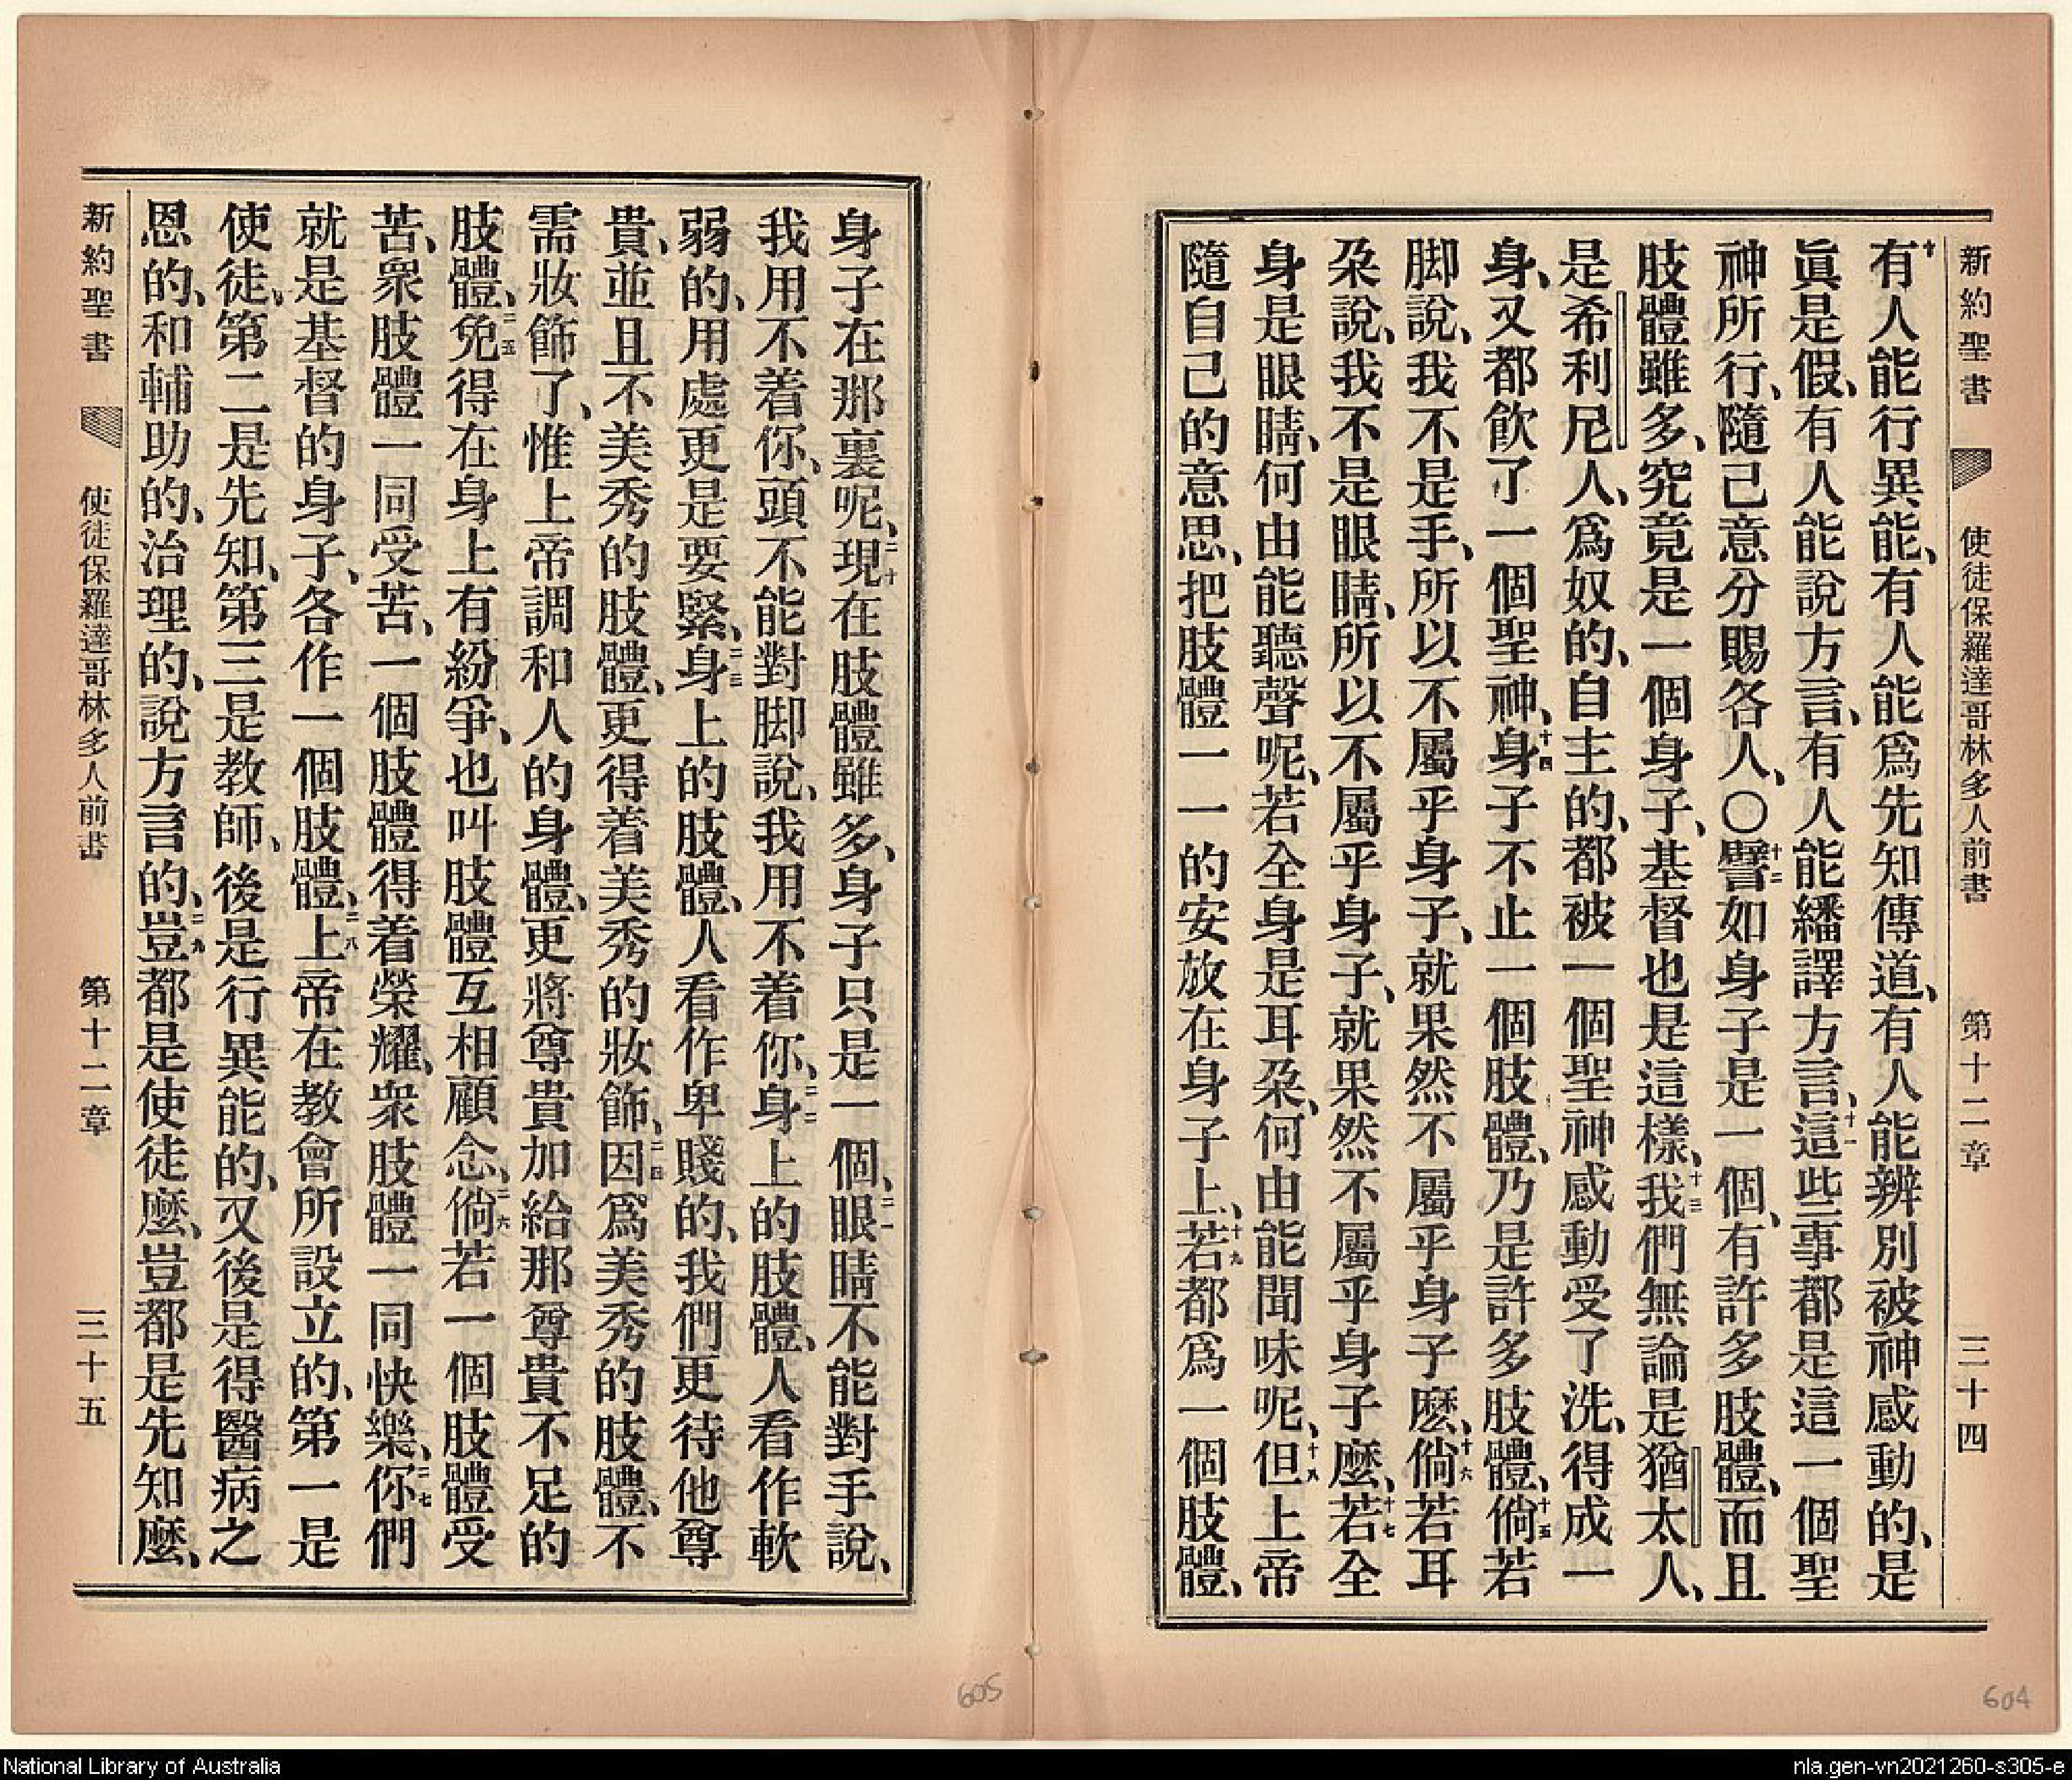 新約聖書 使徒保羅達哥林多人前書 第十二章 三十四
十有人能行異能、有人能爲先知傳道、有人能辨別被神感動的、是
眞是假、有人能說方言、有人能繙譯方言、十一這些事都是這一個聖
神所行、隨己意分賜各人、〇十二譬如身子是一個、有許多肢體、而且
肢體雖多、究竟是一個身子、基督也是這樣、十三我們無論是猶太人、
是希利尼人、爲奴的、自主的、都被一個聖神感動受了洗、得成一
身、又都飲了一個聖神、十四身子不止一個肢體、乃是許多肢體、十五倘若
脚說、我不是手、所以不屬乎身子、就果然不屬乎身子麽、十六倘若耳
朶說、我不是眼睛、所以不屬乎身子、就果然不屬乎身子麽、十七若全
身是眼睛、何由能聽聲呢、若全身是耳朶、何由能聞味呢、十八但上帝
隨自己的意思、把肢體一一的安放在身子上、十九若都爲一個肢體、
身子在那裏呢、二十現在肢體雖多、身子只是一個、二一眼睛不能對手說、
我用不着你、頭不能對脚說、我用不着你、二二身上的肢體、人看作軟
弱的、用處更是要緊、二三身上的肢體、人看作卑賤的、我們更待他尊
貴、並且不美秀的肢體、更得着美秀的妝飾、二四因爲美秀的肢體、不
需妝飾了、惟上帝調和人的身體、更將尊貴加給那尊貴不足的
肢體、二五免得在身上有紛爭、也叫肢體互相顧念、二六倘若一個肢體受
苦、衆肢體一同受苦、一個肢體得着榮耀、衆肢體一同快樂、二七你們
就是基督的身子、各作一個肢體、二八上帝在教會所設立的、第一是
使徒、第二是先知、第三是教師、後是行異能的、又後是得醫病之
恩的、和輔助的、治理的、說方言的、二九豈都是使徒麽、豈都是先知麽、
新約聖書 使徒保羅達哥林多人前書 第十二章 三十五
605
604
National Library of Australia
nla.gen-vn2021260-s305-e